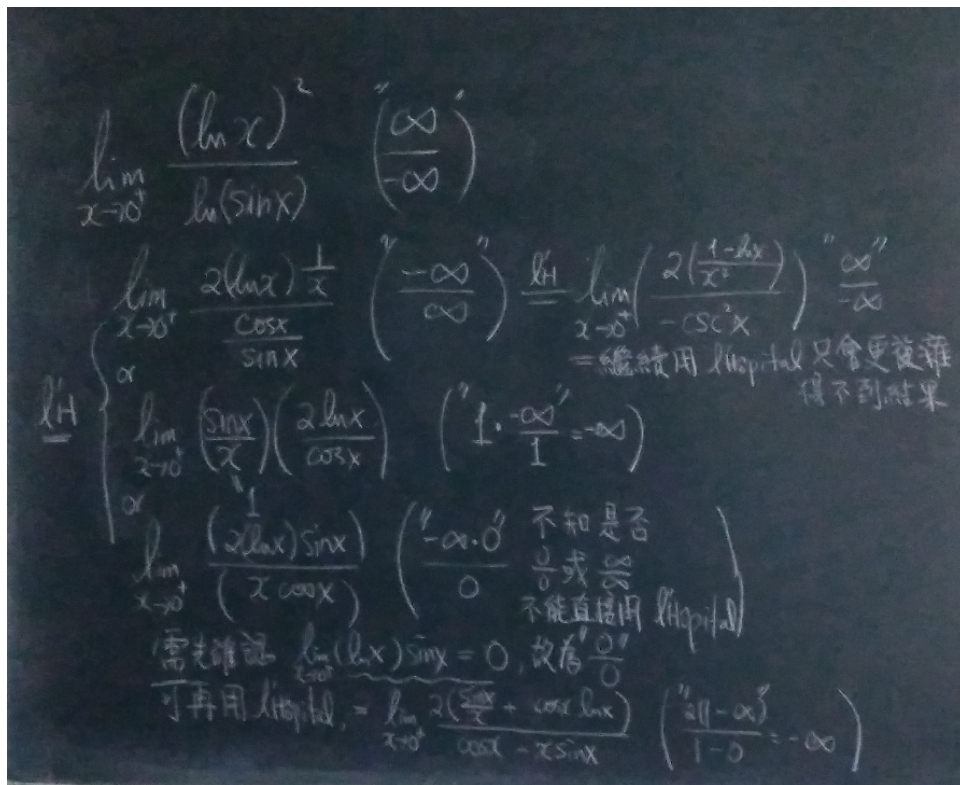 lim x→0⁺ (ln x)² / ln(sin x) ("∞/-∞")
lim x→0⁺ 2(ln x) 1/x / (cos x / sin x) ("-∞/∞") l'H = lim x→0⁺ (2((1-ln x)/x²) / -csc²x) "∞/-∞"
=繼續用 l'Hopital 只會更複雜
得不到結果
or
l'H
lim x→0⁺ (sin x / x)(2 ln x / cos x) ("1·-∞/1"=-∞)
"1
or
lim x→0⁺ (2(ln x) sin x) / (x cos x) ("-∞·0"/0 不知是否
0/0 或 ∞/∞
不能直接用 l'Hopital)
需先確認 lim x→0⁺ (ln x) sin x = 0, 故為 "0/0"
可再用 l'Hopital, = lim x→0⁺ 2(sin x / x + cos x ln x) / (cos x - x sin x) ("2(1-∞)"/1-0 = -∞)